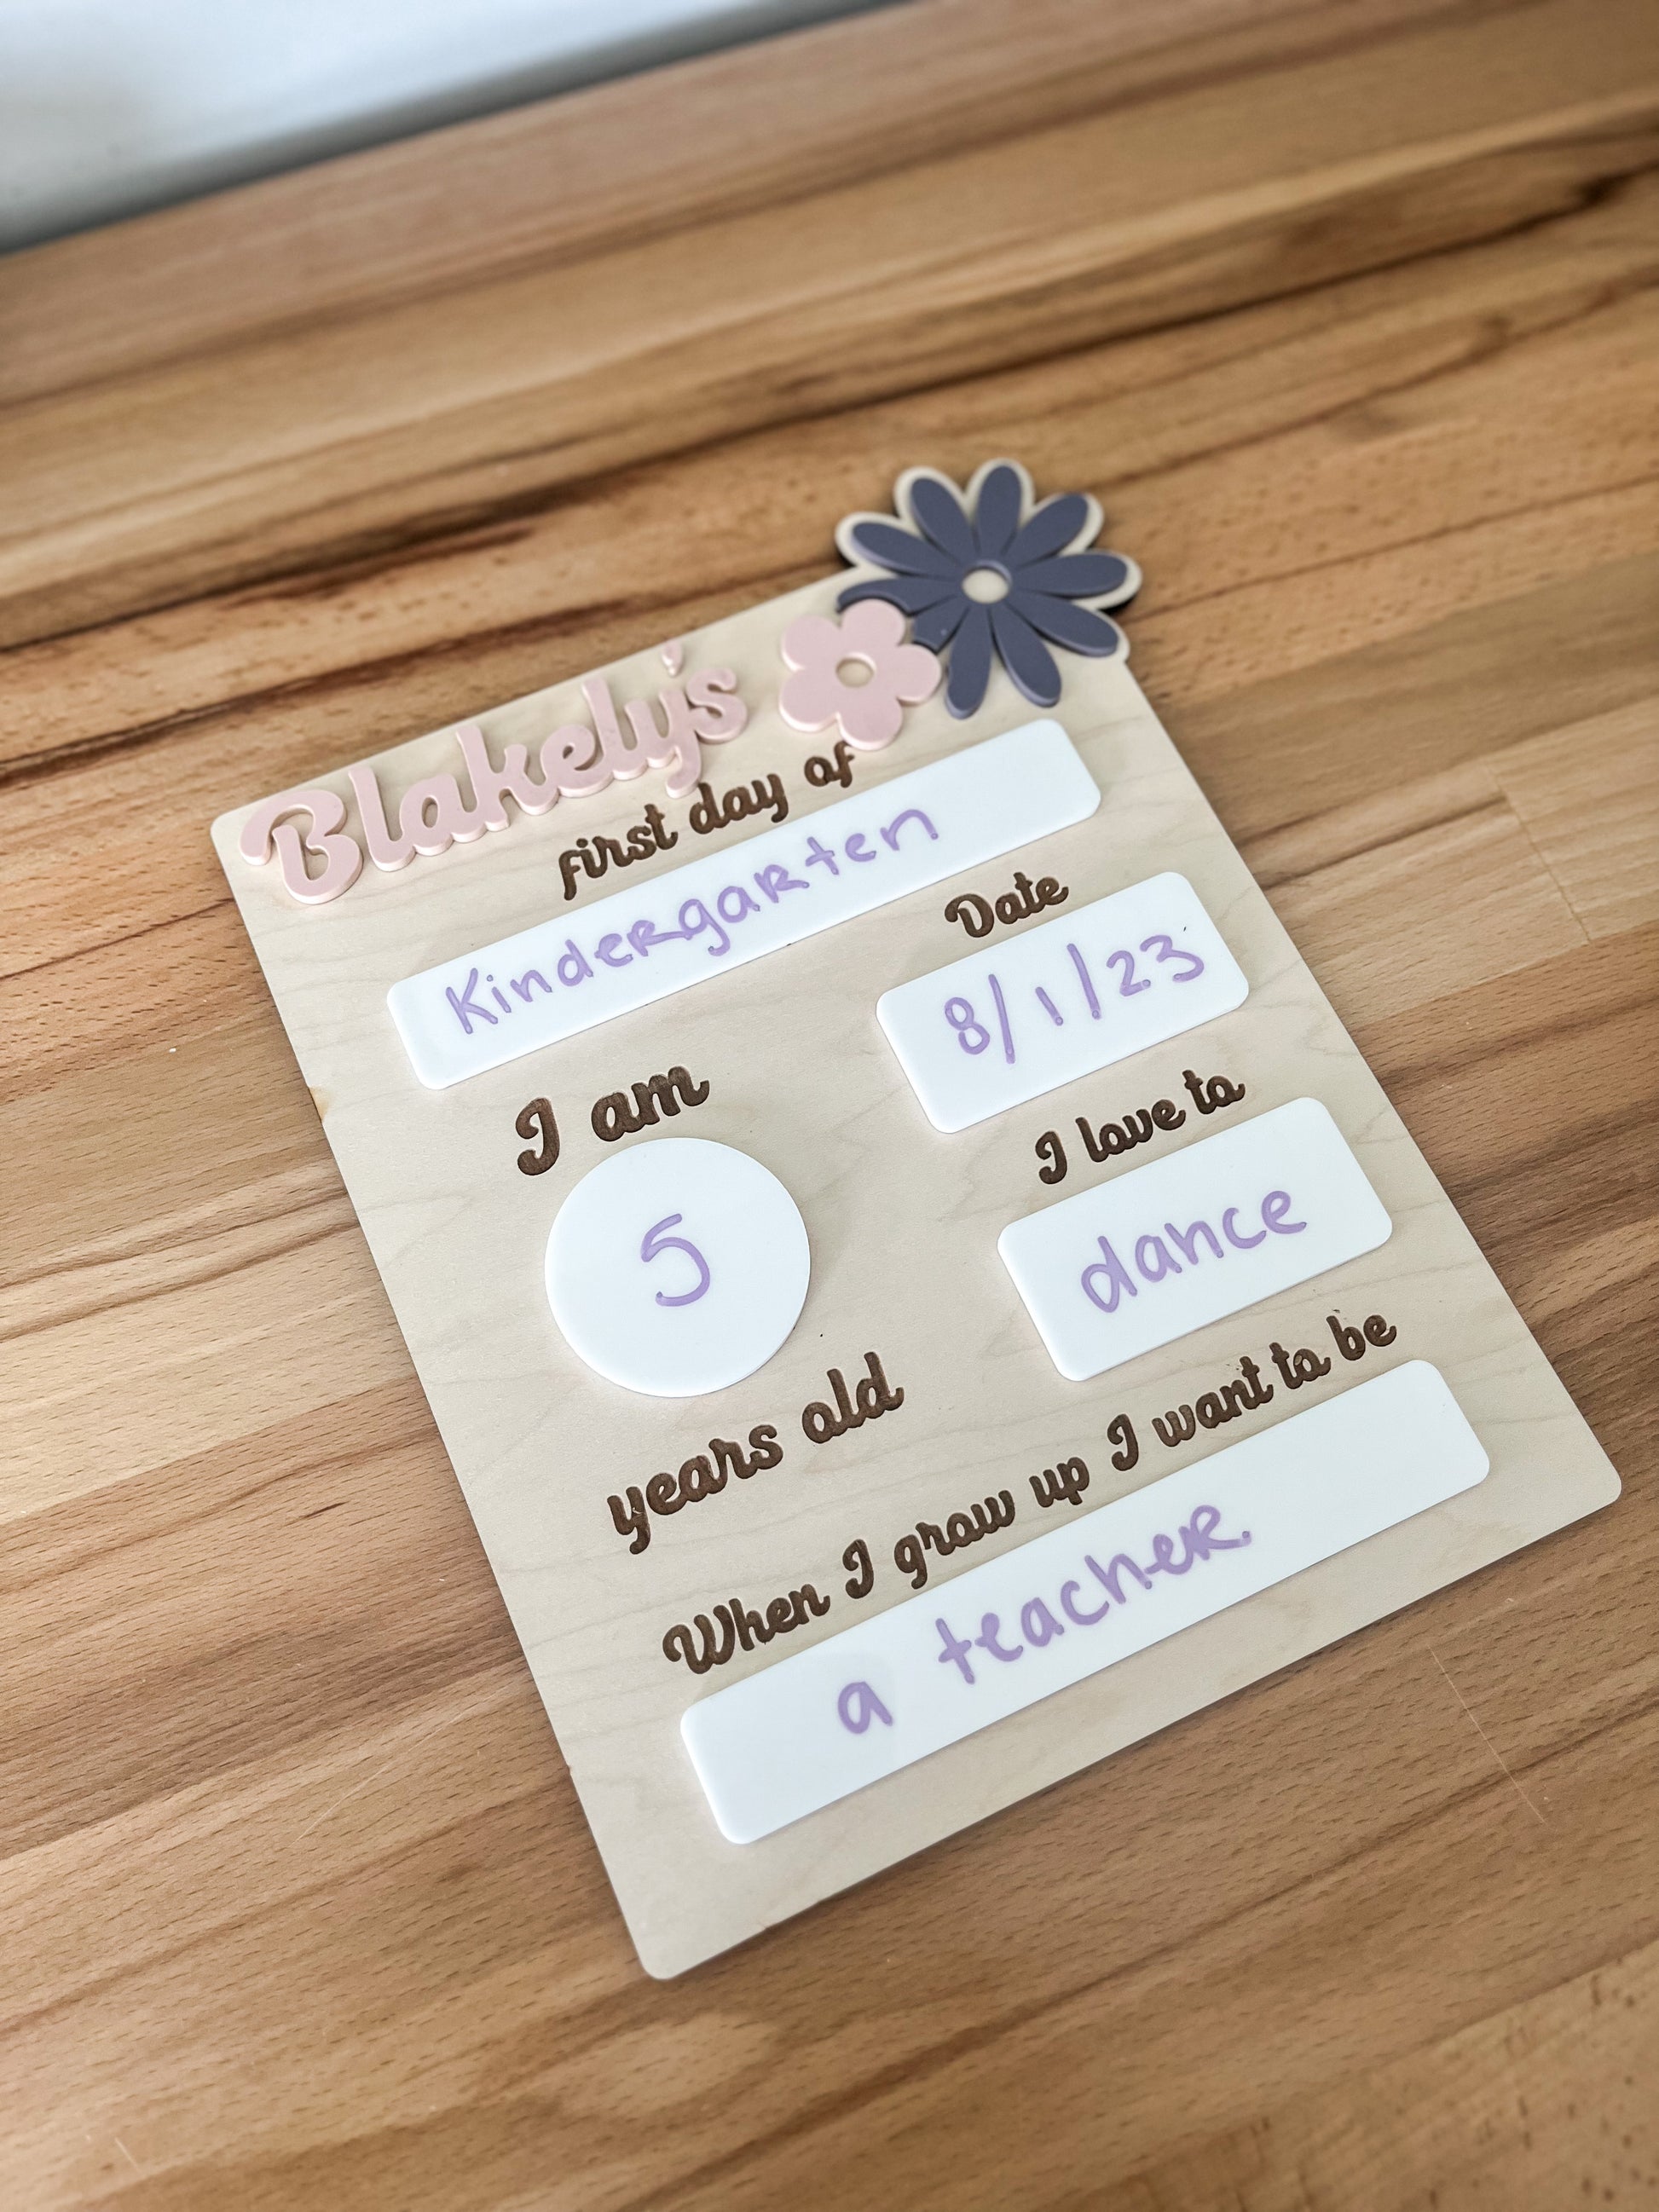 Blakely's
first day of
Kindergarten
Date
8/1/23
I am
5
years old
I love to
dance
When I grow up I want to be
a teacher.